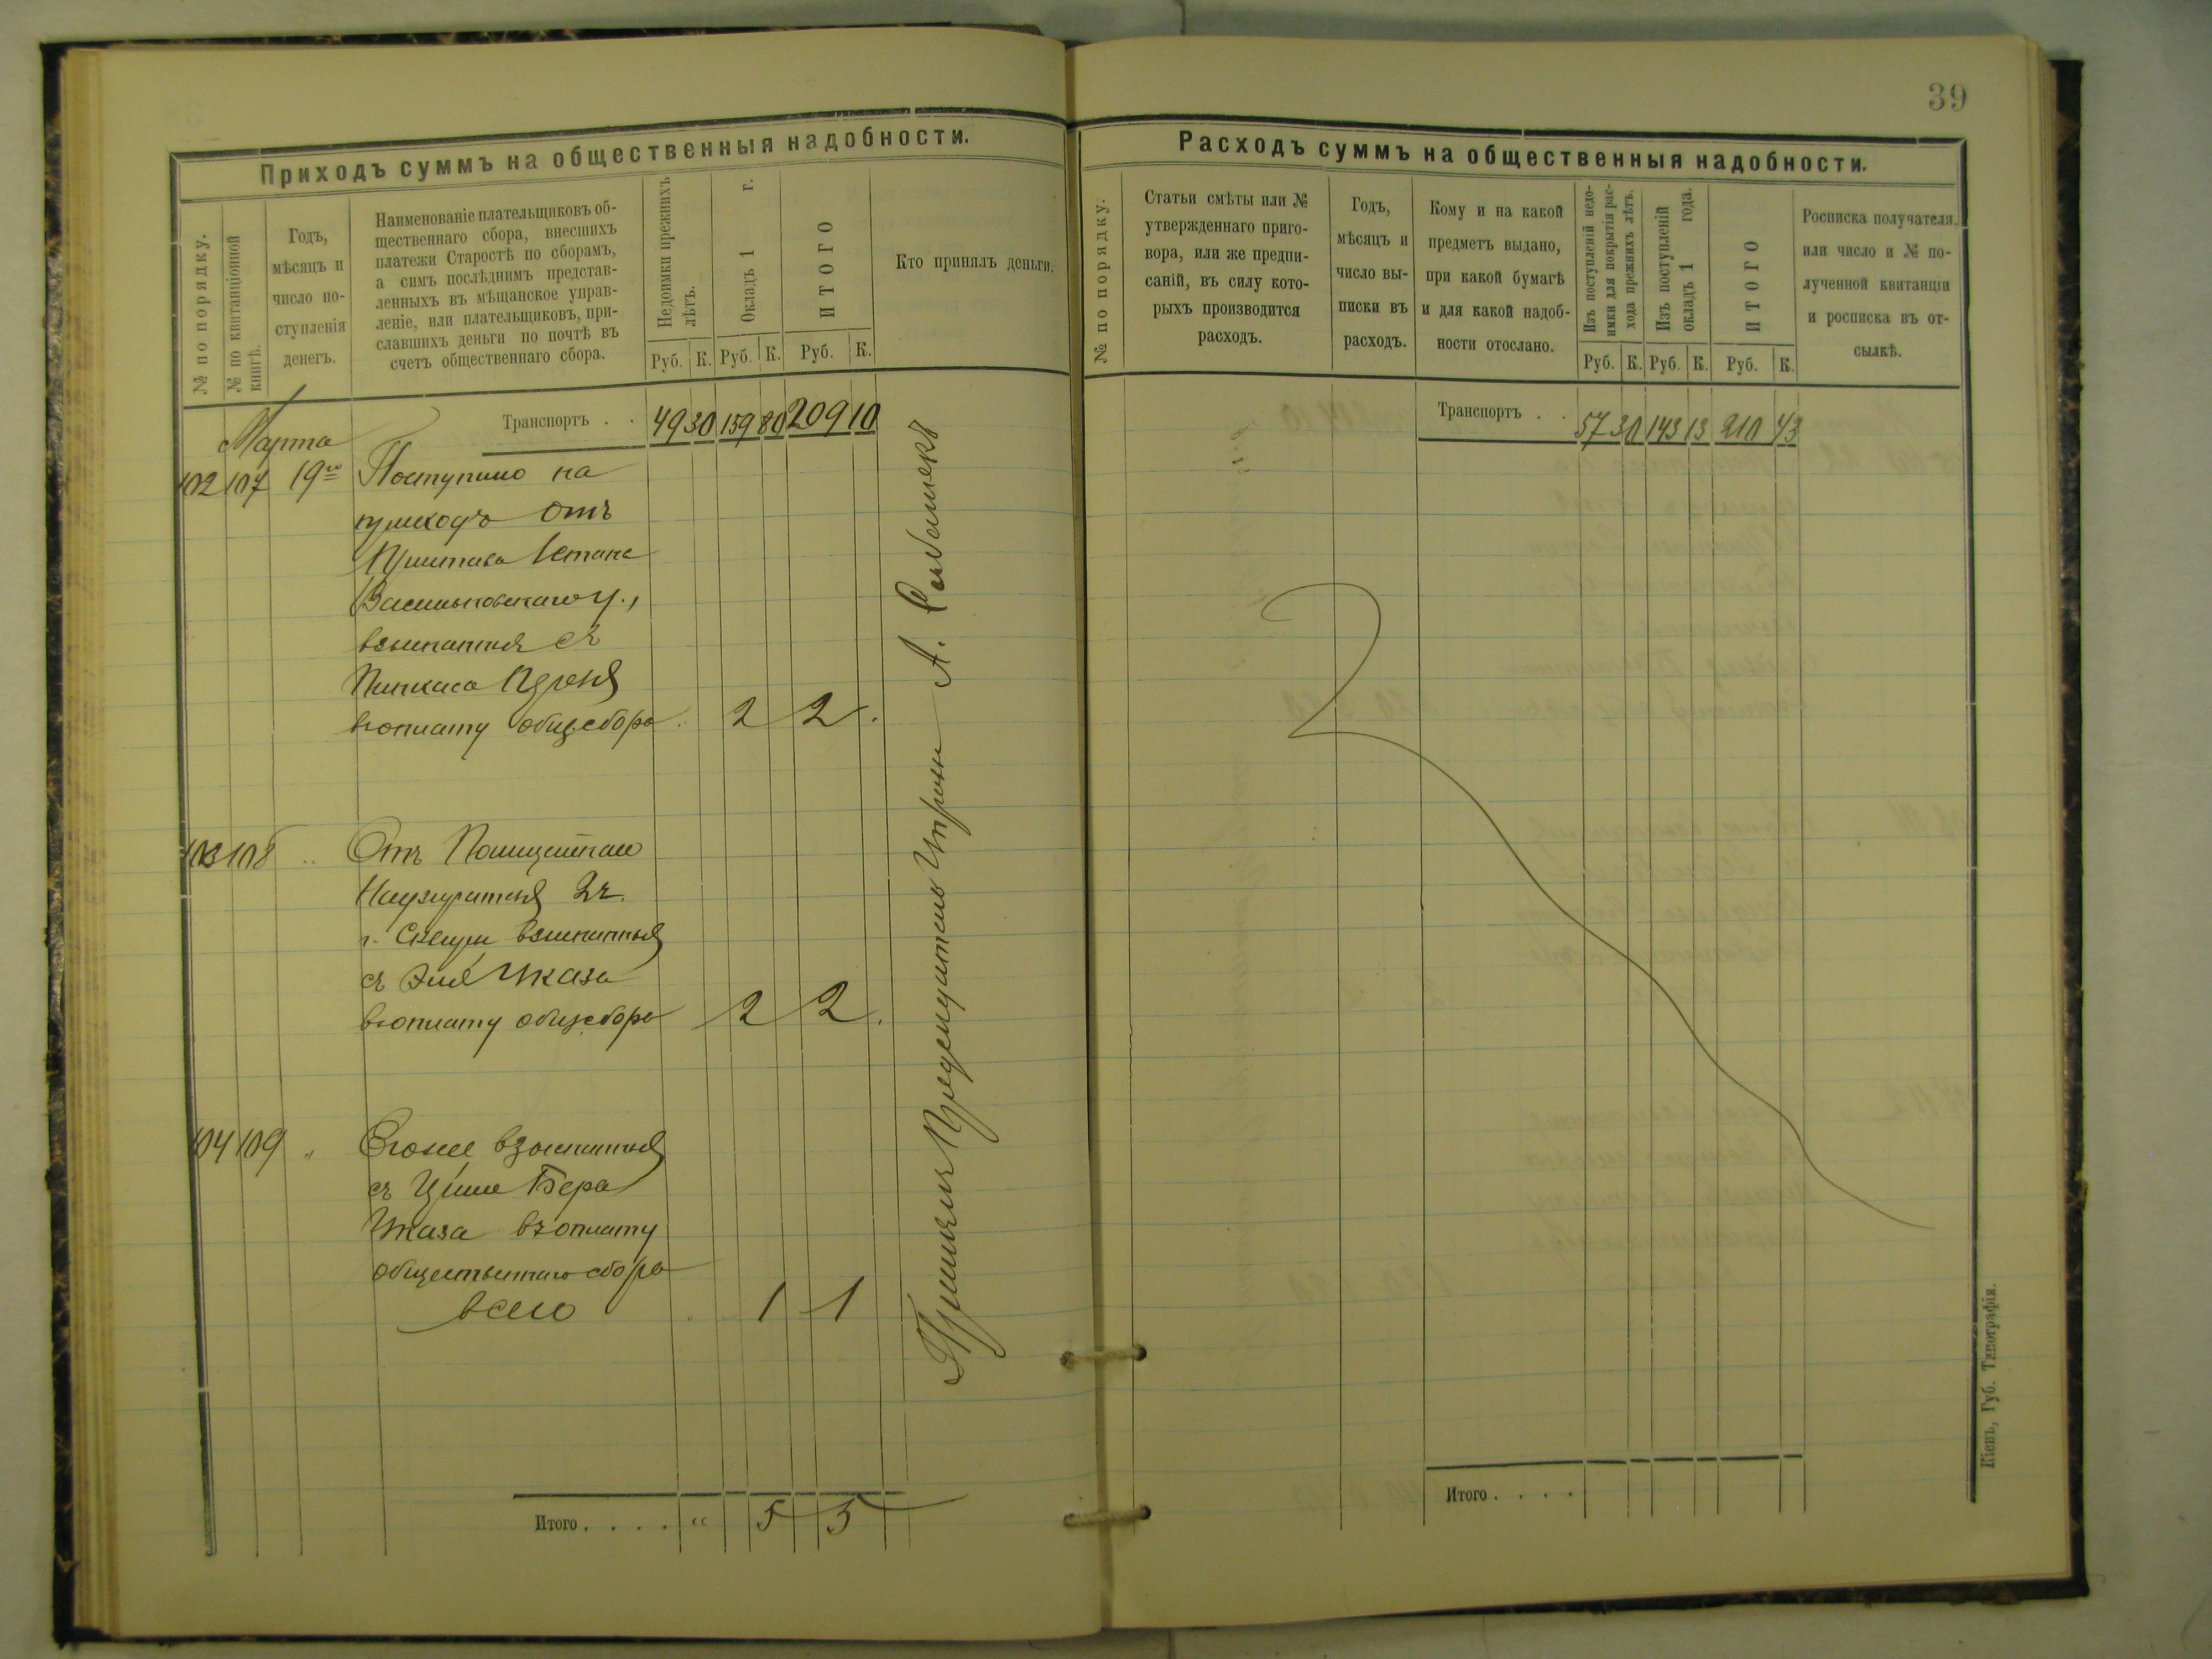 39
Приходъ суммъ на общественныя надобности.
№ по порядку.
№ по квитанціонной
книгѣ.
Годъ,
мѣсяцъ и
число по-
ступленія
денегъ.
Наименованіе плательщиковъ об-
щественнаго сбора, внесшихъ
платежи Старостѣ по сборамъ,
а симъ послѣднимъ представ-
ленныхъ въ мѣщанское управ-
леніе, или плательщиковъ, при-
славшихъ деньги по почтѣ въ
счетъ общественнаго сбора.
Недоимки прежнихъ
лѣтъ.
Окладъ 1 г.
ИТОГО
Руб. К. Руб. К. Руб. К.
Кто принялъ деньги.
Транспортъ . . 49 30 159 80 209 10
Марта
102 107 19го Поступило на
приходъ отъ
Пристава 1 стана
Васильковскаго у.,
взысканныя съ
Пинкаса
въ уплату общ. сбора 2 2
103 108 " Отъ Полицейскаго
Надзирателя 2 ч.
г. Сквиры взысканныя
съ
въ уплату общ. сбора 2 2
104 109 " Егоже взысканныя
съ Бера
въ уплату
общественнаго сбора
всего 1 1
Принялъ Предсѣдатель Управы А.
Итого . . . . " 5 5
Расходъ суммъ на общественныя надобности.
№ по порядку.
Статьи смѣты или №
утвержденнаго приго-
вора, или же предпи-
саній, въ силу кото-
рыхъ производится
расходъ.
Годъ,
мѣсяцъ и
число вы-
писки въ
расходъ.
Кому и на какой
предметъ выдано,
при какой бумагѣ
и для какой надоб-
ности отослано.
Изъ поступленій недо-
имки для покрытія рас-
хода прежнихъ лѣтъ.
Изъ поступленій
окладъ 1 года.
ИТОГО
Руб. К. Руб. К. Руб. К.
Росписка получателя.
или число и № по-
лученной квитанціи
и росписка въ от-
сылкѣ.
Транспортъ . . 57 30 143 13 210 43
Итого . . . .
Кіевъ, Губ. Типографія.